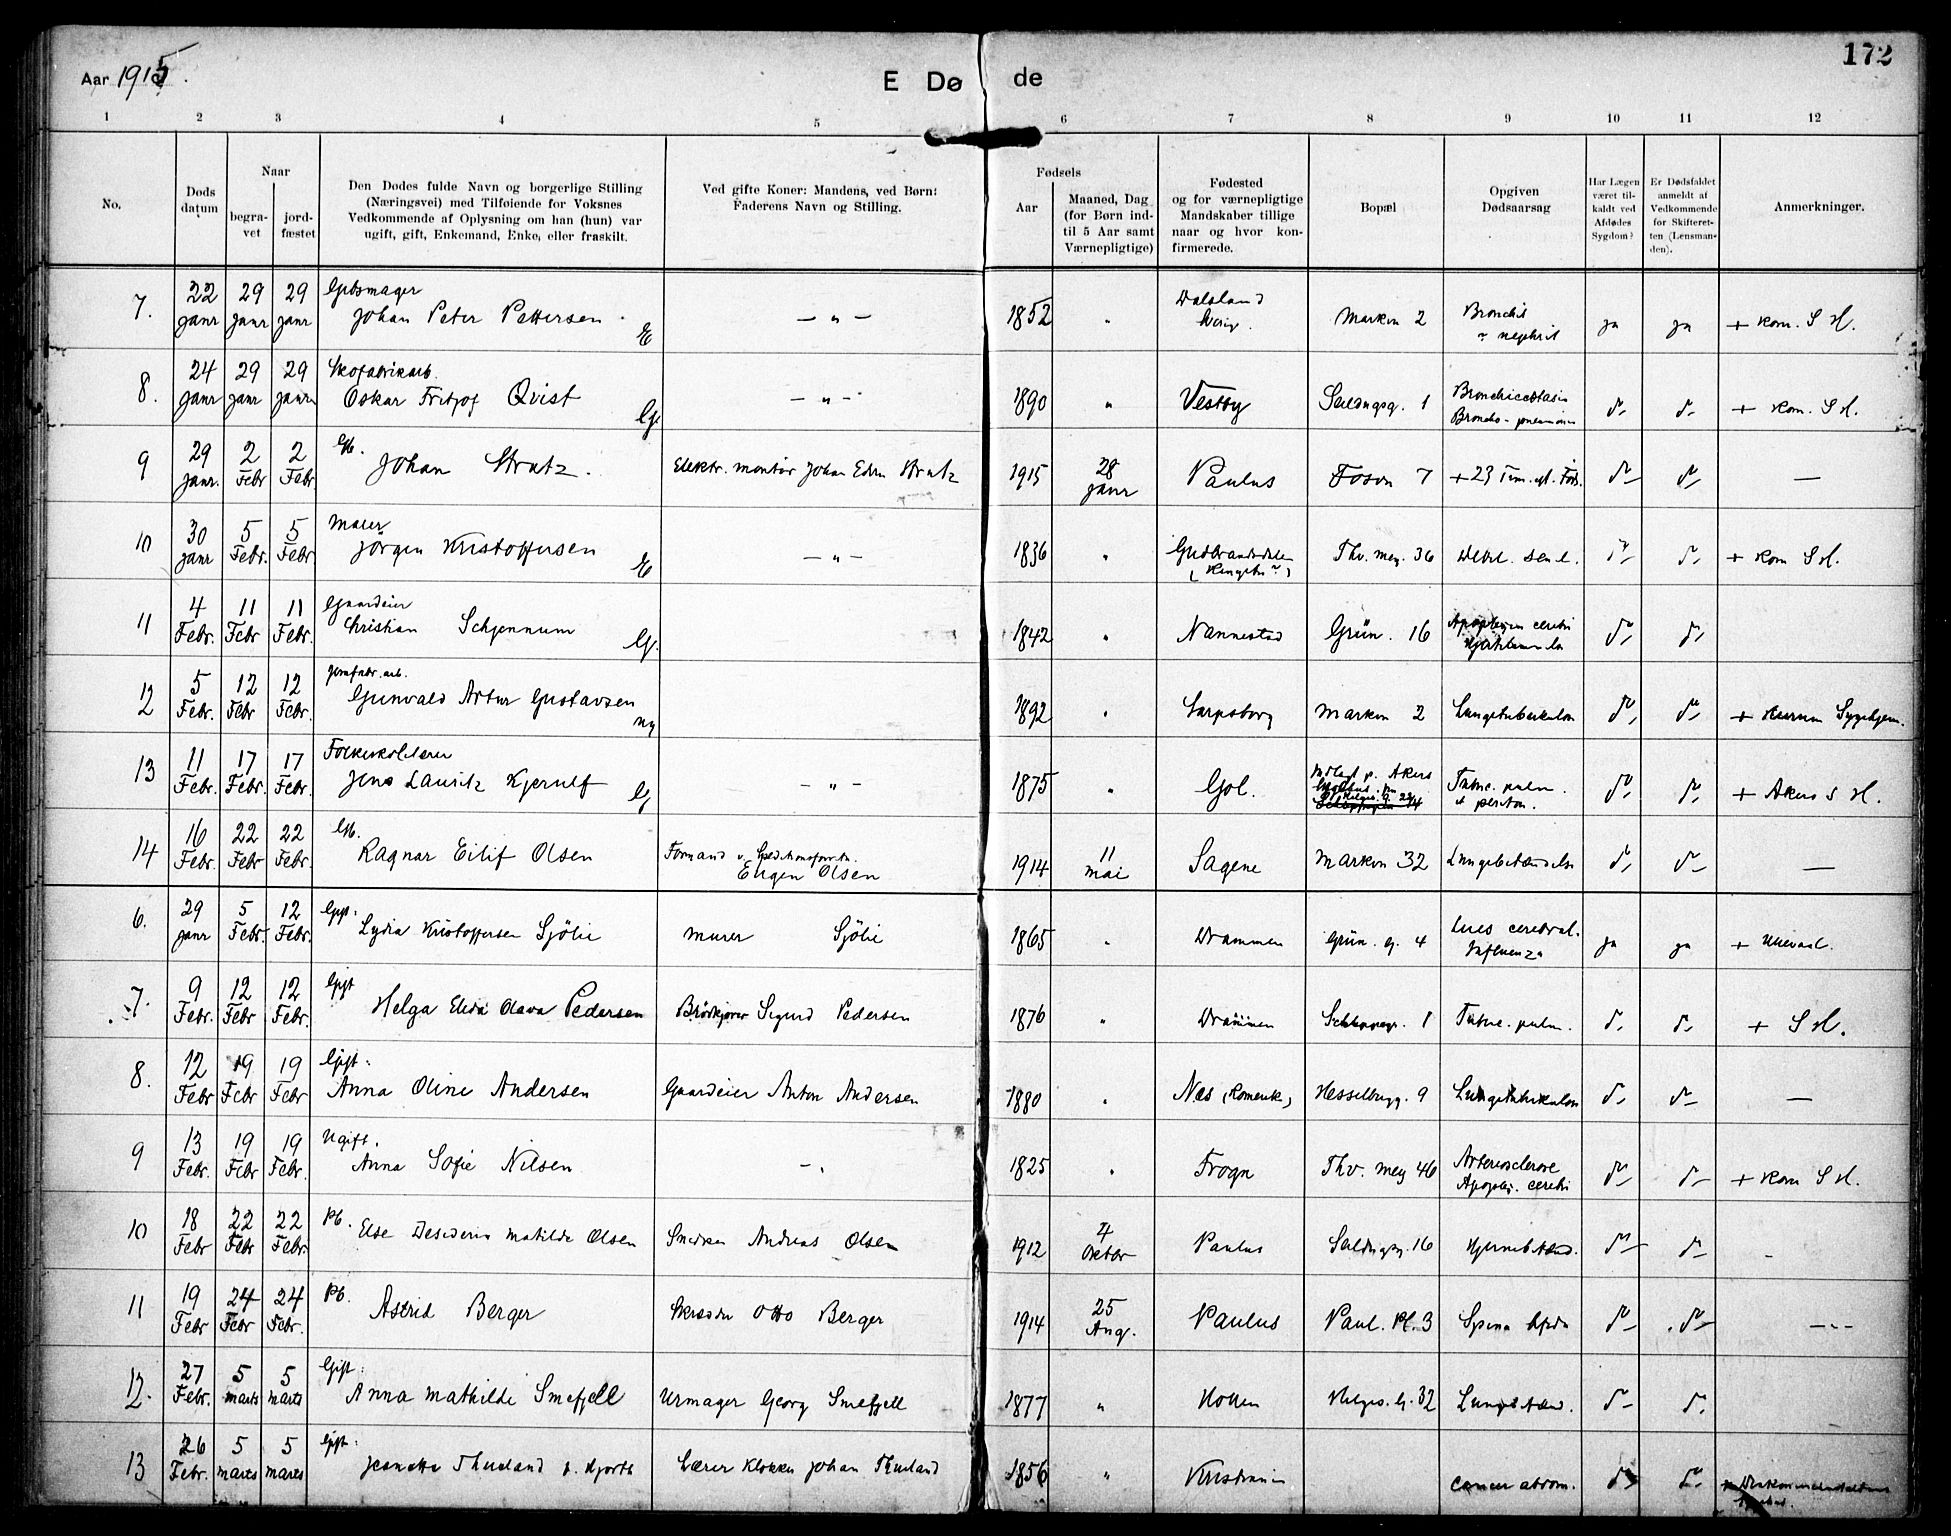 172
Aar 1915.
E Døde
1 2 3 4 5 6 7 8 9 10 11 12
No.
Døds datum
Naar
begra-vet
jord-fæstet
Den Dødes fulde Navn og borgerlige Stilling
(Næringsvei) med Tilføiende for Voksnes
Vedkommende af Oplysning om han (hun) var
ugift, gift, Enkemand, Enke, eller fraskilt.
Ved gifte Koner: Mandens, ved Børn:
Faderens Navn og Stilling.
Fødsels
Aar
Maaned, Dag
(for Børn ind-
til 5 Aar samt
Værnepligtige)
Fødested
og for værnepligtige
Mandskaber tillige
naar og hvor kon-
firmerede.
Bopæl
Opgiven
Dødsaarsag
Har Lægen
været til-
kaldt ved
Afdødes
Sygdom?
Er Dødsfaldet
anmeldt af
Vedkommende
for Skifteret-
ten (Lensman-
den).
Anmerkninger.
7. 22 janr 29 janr 29 janr Gibsmager
Johan Peter Pettersen. E — " — 1852 " Dalsland Markvn 2 Bronchit nephrit ja ja + Kom. S H.
8. 24 janr 29 janr 29 janr Skofabrikarb.
Oskar Fritjof Qvist G. — " — 1890 " Vestby Seildugsg. 1 Broncho-pneumoni d- d- + Kom. S H.
9 29 janr. 2 Febr 2 Febr Gb.
Johan Strutz. Elektr. montør Johan Edv. Strutz 1915 28 janr Paulus Fosvn 7 + 23 Tim. eft. Føds. d- d- —
10 30 janr 5 Febr. 5 Febr Murer
Jörgen Kristoffersen E — " — 1836 " Gudbrandsdalen (Ringebu?) Thv. mey. 36 Debil. senil. d- d- + Kom S H.
11 4 Febr. 11 Febr 11 Febr. Gaardeier
Christian Schjennum G. 1842 " Nannestad Grün. 16 Apoplexia cerebri d- d-
12 5 Febr. 12 Febr 12 Febr.
Gunvald Artur Gustavsen ug 1892 " Sarpsborg Markvn 2 Lungetuberkulose d- d- + Hurum Sygehjem.
13 11 Febr. 17 Febr. 17 Febr. Folkeskolelærer
Jens Lauritz Kjerulf G — " — 1875 " Gol. Indlagt p. Akers Tuberc. pulm. et periton. d- d- + Akers S H.
14 16 Febr. 22 Febr 22 Febr. Gb.
Ragnar Eilif Olsen Formand v. Speditionsforretn. Eugen Olsen 1914 11 mai Sagene Markvn 32 Lungebetændelse d- d- —
6. 29 janr 5 Febr. 12 Febr. Gift. Lydia Kristoffersen Sjölie murer Sjölie 1865 " Drammen Grün. g. 4 Lues cerebral. Influenza ja ja + Ullevaal.
7. 9 Febr. 12 Febr 12 Febr. Gift
Helga Elida Olava Pedersen Brödkjører Sigurd Pedersen 1876 " Drammen Schleppegr. 1 Tuberc. pulm. d- d- + S H.
8. 12 Febr 19 Febr 19 Febr Gift:
Anna Oline Andersen Gaardeier Anton Andersen 1880 " Næs (Romerik) Hesselbergg. 9 Lungetuberkulose d- d- —
9 13 Febr. 19 Febr 19 Febr. Ugift.
Anna Sofie Nilsen — " 1825 " Frogn Thv. mey 46 Arteriosclerose Apoplex. cerebri d- d- + Kom S H.
10 18 Febr 22 Febr 22 Febr. Pb.
Else Desideria Matilde Olsen Snedker Andreas Olsen 1912 4 Oktbr Paulus Seildugsg. 16 Hjernebetænd. d- d- -
11 19 Febr 24 Febr 24 Febr. Pb.
Astrid Berger Skrædder Otto Berger 1914 25 Aug. Paulus Paul. Pl. 3 Spina bifida d- d- —
12. 27 Febr. 5 marts 5 marts Gift:
Anna Mathilde Smefjell Urmager Georg Smefjell 1877 " Hollen Helges. g. 32 Lungebetænd. d- d-
13 26 Febr. 5 marts 5 marts Gift:
Jeanette Thueland f. Hjorth Lærer Klokker Johan Thueland 1856 " Kristiania cancer abdom. d- d-